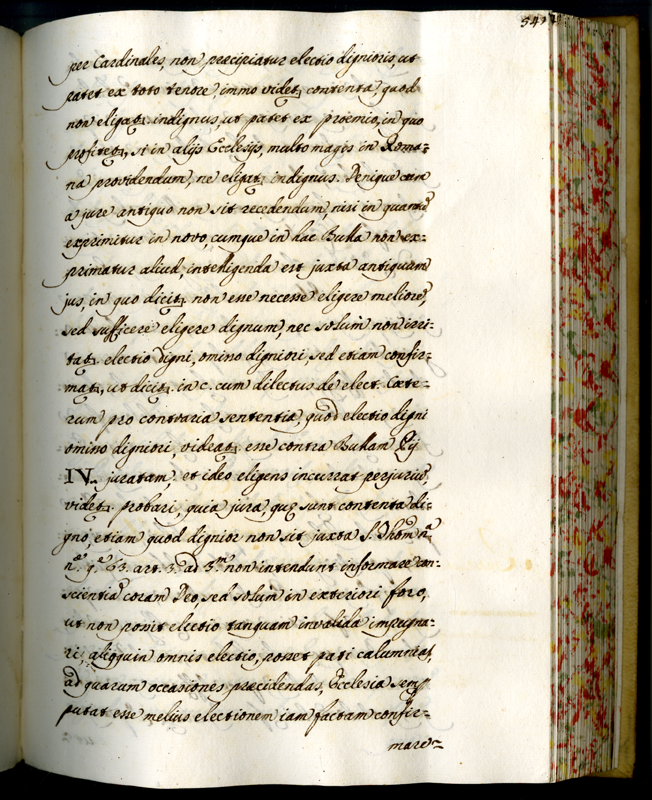 541
per Cardinales, non præcipiatur electio dignioris, ut
patet ex toto tenore, immo videt contenta, quod
non eligat. indignus, ut patet ex proemio, in quo
profitet, si in alijs Ecclesijs, multo magis in Roma=
na providendum, ne eligat indignus. Denique cum
a jure antiquo non sit recedendum, nisi in quantū
exprimitur in novo, cumque in hac Bulla non ex=
primatur aliud, intelligenda est juxta antiquum
jus, in quo dicit. non esse necesse eligere meliorē,
sed sufficere eligere dignum, nec solum non irri=
tat. electio digni, omisso digniori, sed etiam confir=
mat, ut dicit. in c. cum dilectus de elect. Cœte=
rum pro contraria sententia, quod electio digni
omisso digniori, videat. esse contra Bullam Pij
IV. juratam. et ideo eligens incurrat perjuriū,
videt. probari, quia jura, quę sunt contenta di=
gno, etiam quod dignior non sit juxta S. Thom
63. art. 3. ad 3.m non intendunt informare con=
scientiā coram Deo, sed solum in exteriori foro,
ut non possit electio tanquam invalida impugna=
ri, alioquin omnis electio, posset pati calumnias,
ad quarum occasiones præcidendas, Ecclesia semp
putat esse melius electionem iam factam confir=
mare=